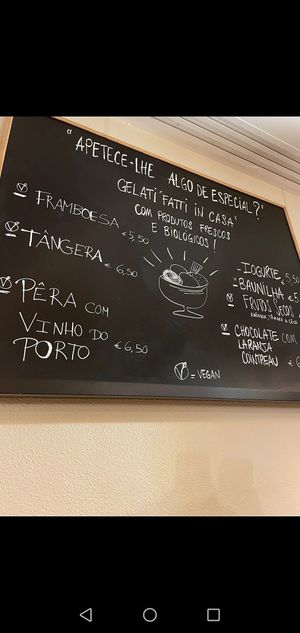 "APETECE-LHE ALGO DE ESPECIAL?"
GELATI 'FATTI IN CASA'
COM PRODUTOS FRESCOS
E BIOLOGICOS!
V FRAMBOESA €5,50
V TÂNGERA €6,50
V PÊRA COM
VINHO DO
PORTO €6,50
- IOGURTE 5,50
- BAUNILHA €5
V FRUTOS SECOS
V CHOCOLATE COM
LARANJA
COINTREAU €6
V = VEGAN